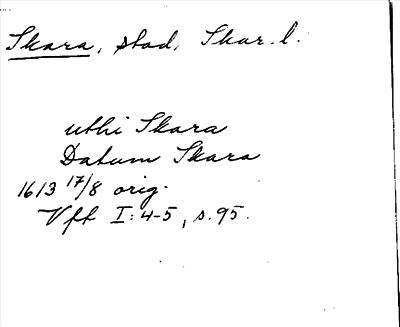 Skara, stad, Skar. l.
uthi Skara
Datum Skara
1613 17/8 orig.
Vff I: 4-5, s. 95.